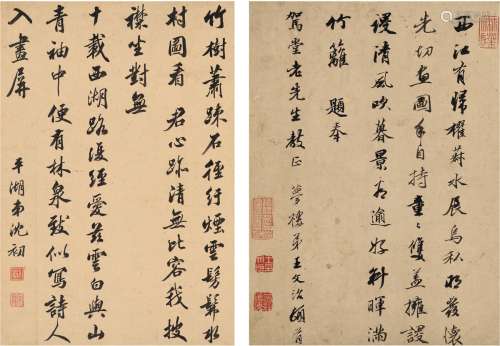 西江有歸櫂菽水展烏私明發懷
先切畫圖手自持重重雙蓋擁謖
謖清風吹暮景適好斜暉滿
竹籬 題奉
駕堂老先生教正 夢樓弟王文治頓首
竹樹蕭疎石徑行煙雲髣髴水
村圖看君心跡清無比容我披
襟坐對無
十載西湖路復經愛茲雲白與山
青袖中便有林泉致似寫詩人
入畫屏
平湖弟沈初